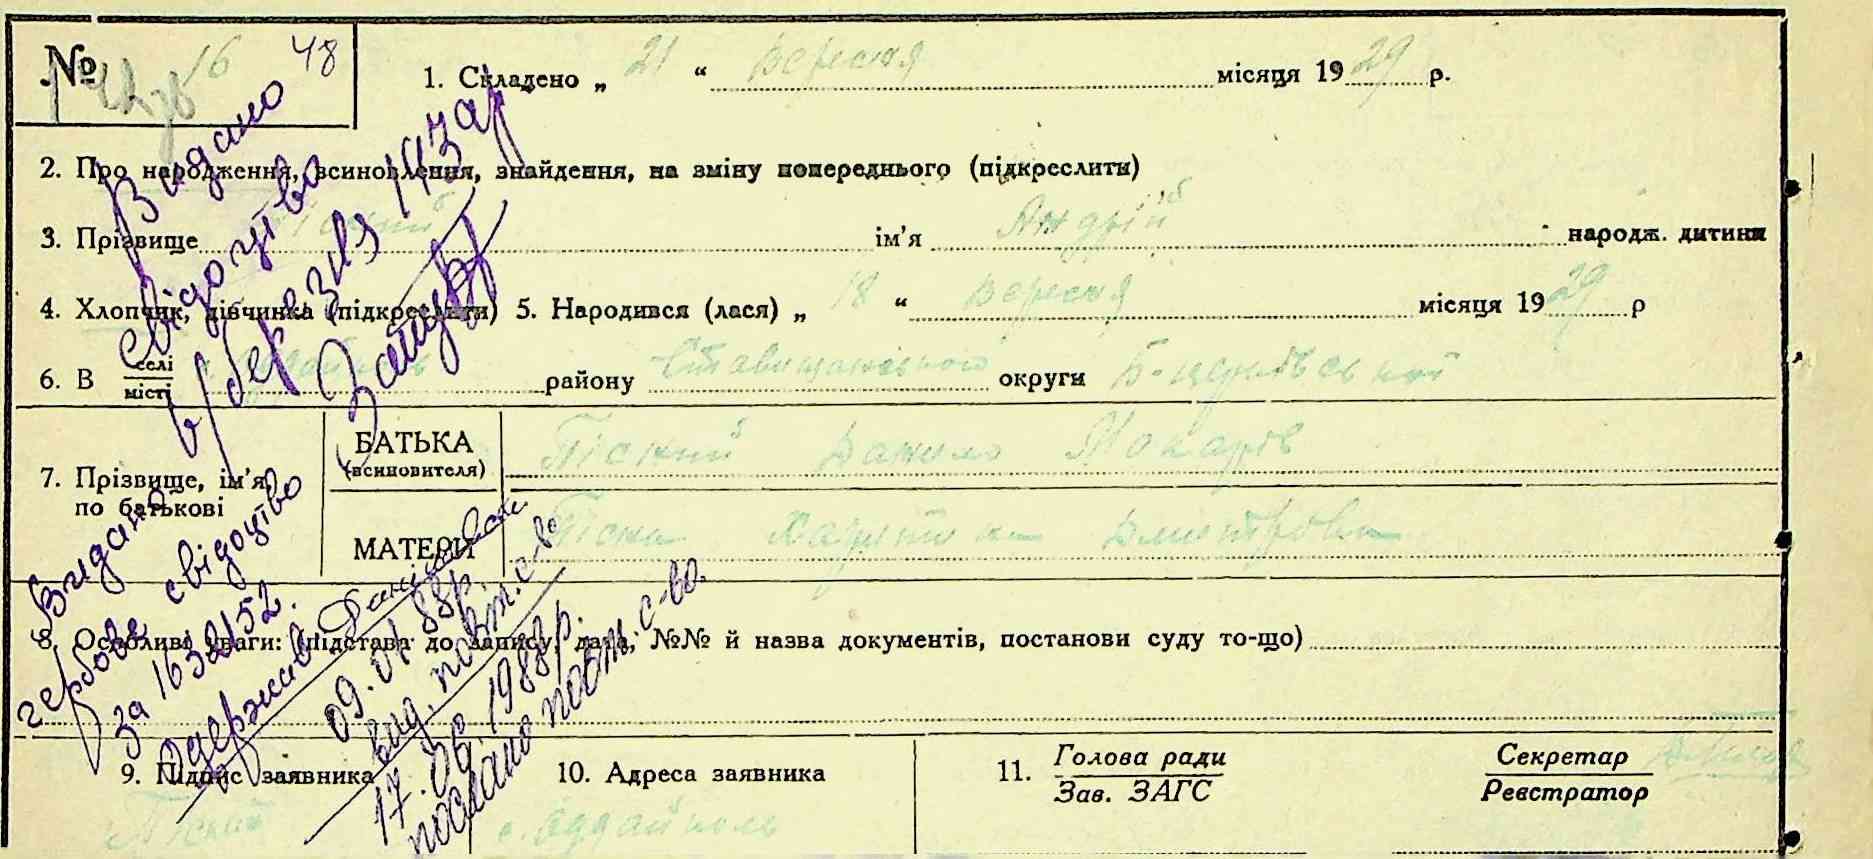 № 16 48
1. Складено „ 21 “ вересня місяця 1929 р.
2. Про народження, всиновлення, знайдення, на зміну попереднього (підкреслити)
3. Прізвище Піский ім'я Андрій народж. дитини
4. Хлопчик, дівчинка (підкреслити) 5. Народився (лася) „ 18 “ вересня місяця 1929 р
6. В селі місті районy Ставищанського округи Б-церківської
7. Прізвище, ім'я, по батькові
БАТЬКА (всиновителя) Піский Данило Макарів
МАТЕРИ Піска Харитина Дмитрова
8. Особливі уваги: (підстава до запису, дата, №№ й назва документів, постанови суду то-що)
9. Підпис заявника Піский
10. Адреса заявника с.
11. Голова ради Зав. ЗАГС
Секретар Реєстратор
Видано
свідоцтво
6/березня
Видано
гербове свідоцтво
за 1632152.
Одержив
09.01.88р.
вид. повт. с-во
17.06.1988р.
послано повт. с-во.